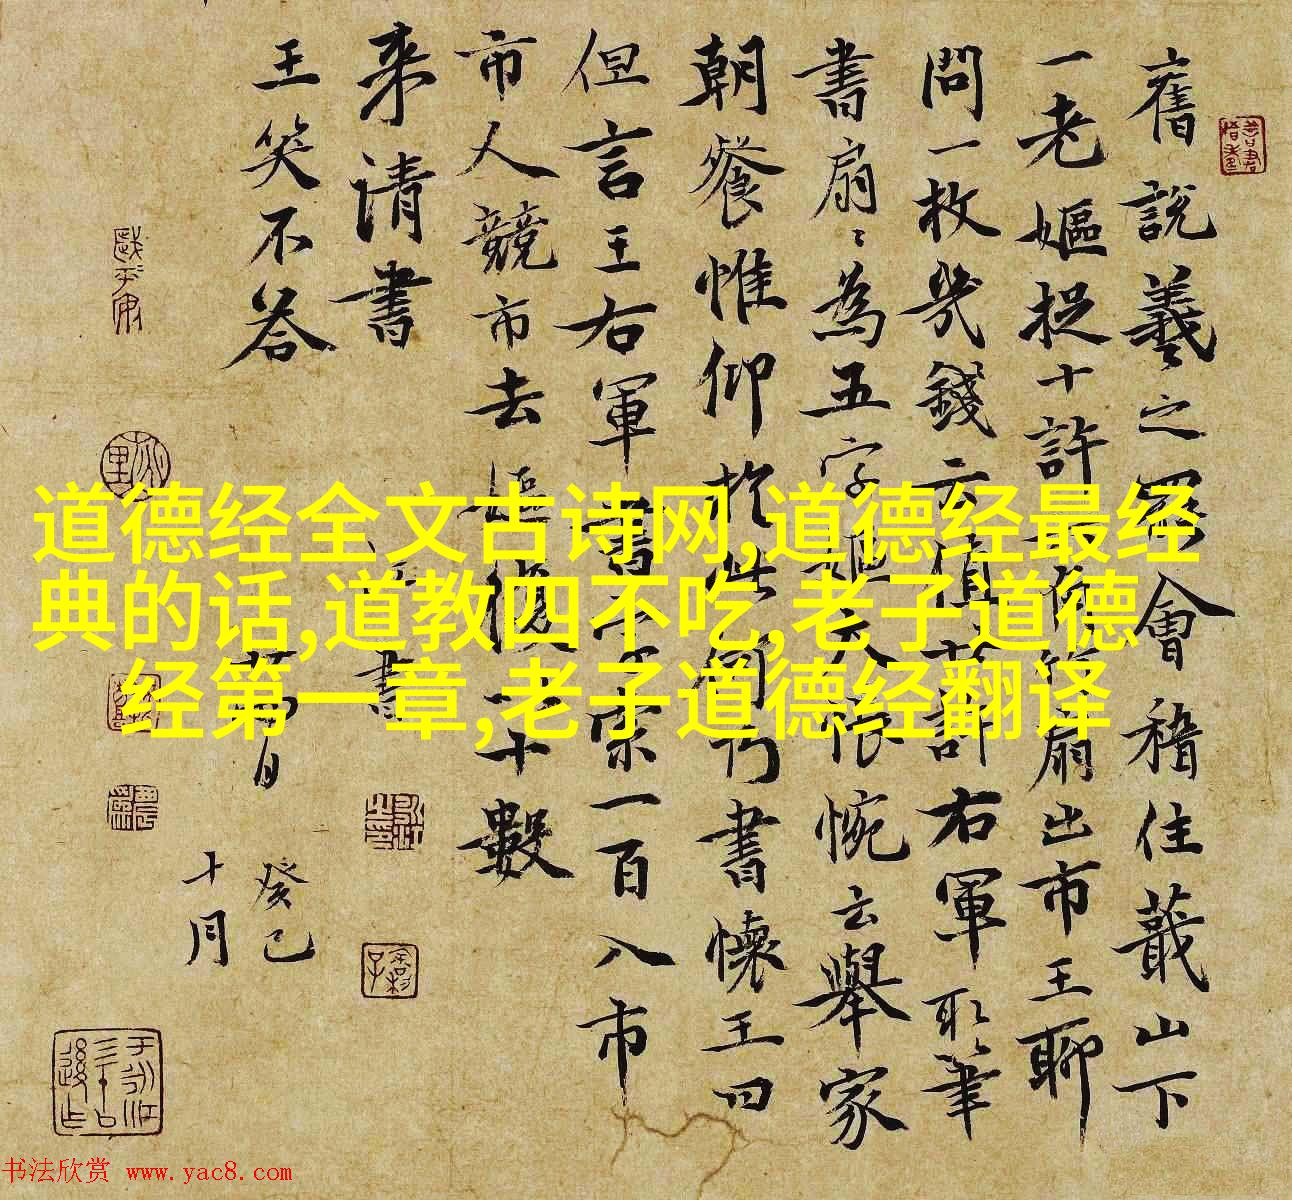 舊說羲之罷會稽住蕺山下
一老嫗捉十許
扇出市王聊
問一枚幾錢云
許右軍取筆
書扇〻為五字嫗
悵惋云舉家
朝餐惟仰於此
書懷王曰
但言王右軍書
一百入市
市人競市去嫗
十數
来請書
王笑不答
癸巳
十月
道德经全文古诗网,道德经最经
典的话,道教四不吃,老子道德
经第一章,老子道德经翻译
书法欣赏 www.yac8.com